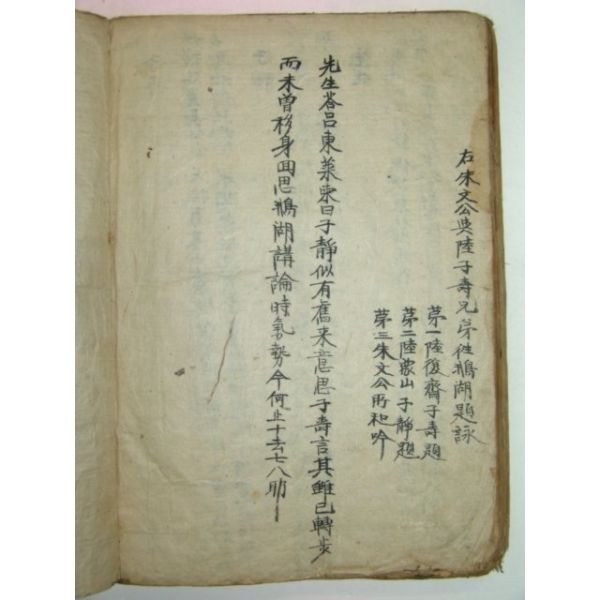 右朱文公與陸子壽兄弟往鵝湖題詠
第一陸復齋子壽題
第二陸象山子靜題
第三朱文公所和吟
先生答呂東萊柬曰子靜似有舊来意思子壽言其雖已轉步
而未曾移身回思鵝湖講論時氣勢今何止十去七八耶